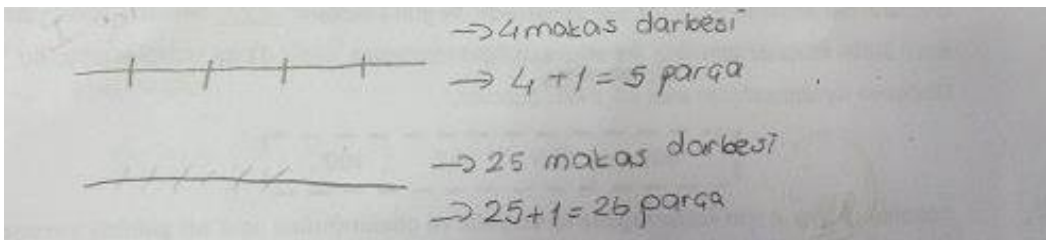 → 4 makas darbesi
→ 4 + 1 = 5 parça
→ 25 makas darbesi
→ 25+1 = 26 parça